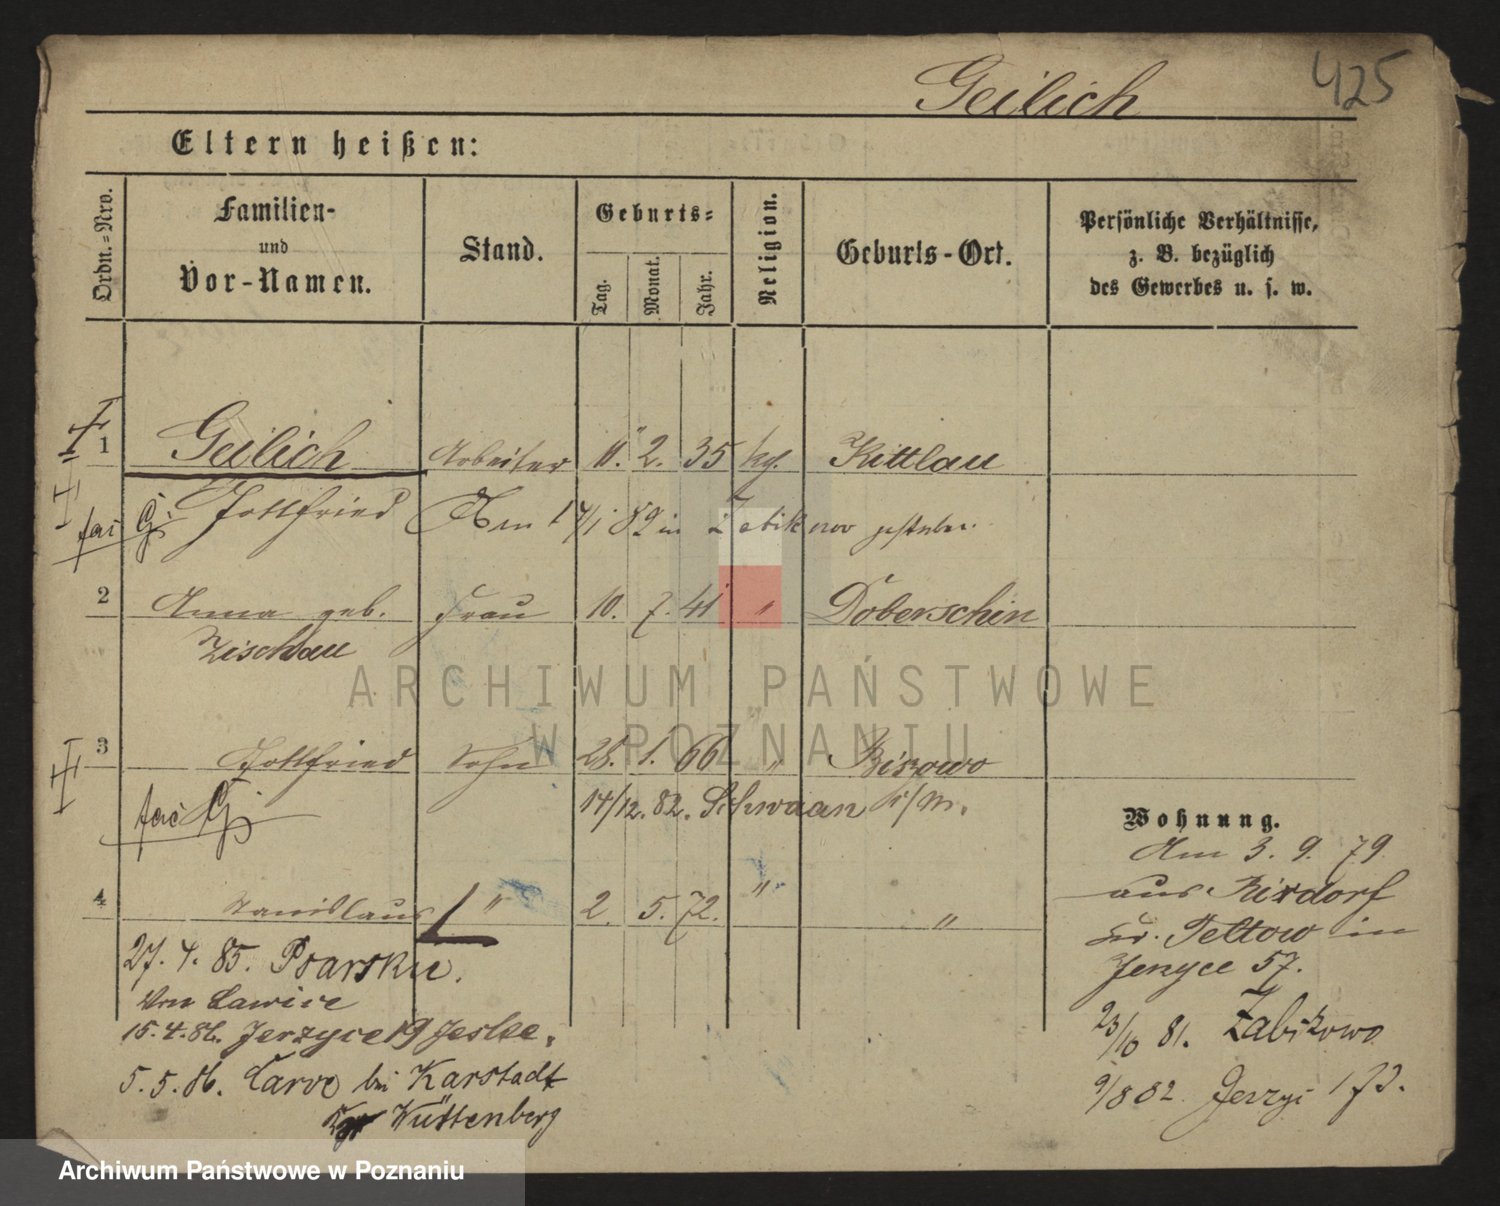 Geilich 425
Eltern heißen:
Ordn.=Nro.
Familien-
und
Vor-Namen.
Stand.
Geburts=
Tag.
Monat.
Jahr.
Religion.
Geburts-Ort.
Persönliche Verhältnisse,
z. B. bezüglich
des Gewerbes u. s. w.
1 Geilich Arbeiter 11. 2. 35 kg. Kittlau
Gottfried Am 17/1 82 in Zabikowo gestorben
2 Anna geb. Frau 10. 7. 41 " Doberschin
Zischau
ARCHIWUM PAŃSTWOWE
W POZNANIU
3 Gottfried Sohn 28. 1. 66 "
14/12. 82. Schwaan i/M.
4 Stanislaus " 2 5. 72. " "
27. 4. 85. Psarskie.
Von Lawice
15. 4. 86. Jerzyce 19 Jeske.
5. 5. 86. Carvo bei Karstadt
Württenberg
Wohnung.
Am 3. 9. 79
aus Rixdorf
Kr. Teltow in
Jerzyce 57.
23/10 81. Zabikowo
9/8 82 Jerzyc 173.
Archiwum Państwowe w Poznaniu